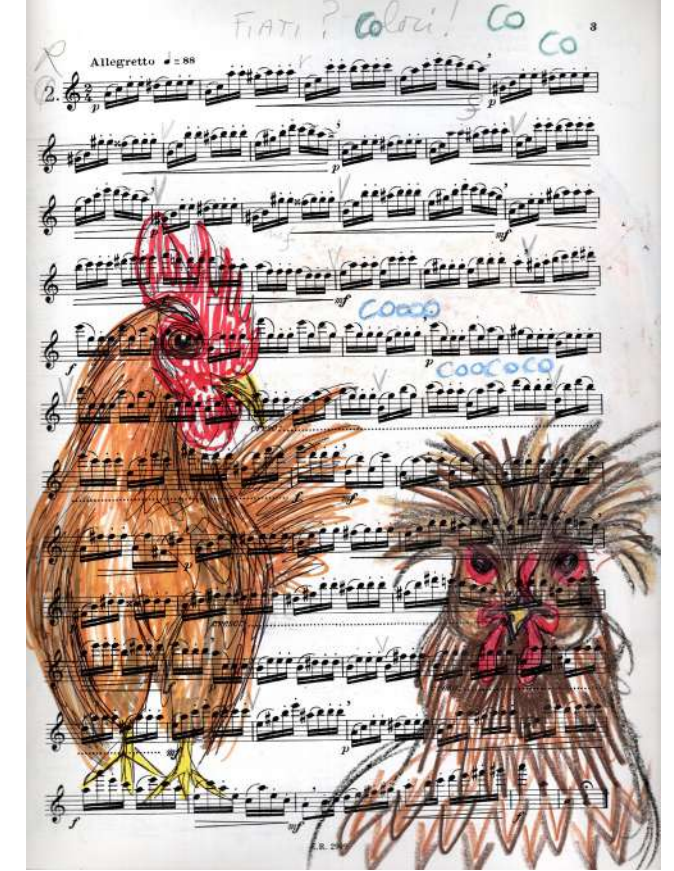 FIATI? Colori! CO
CO
3
Allegretto ♩ = 88
2.
p
p
p
mf
mf
COOOO
f
p
COOCOCO
cresc.
f
mf
p
cresc.
mf
p
f
mf